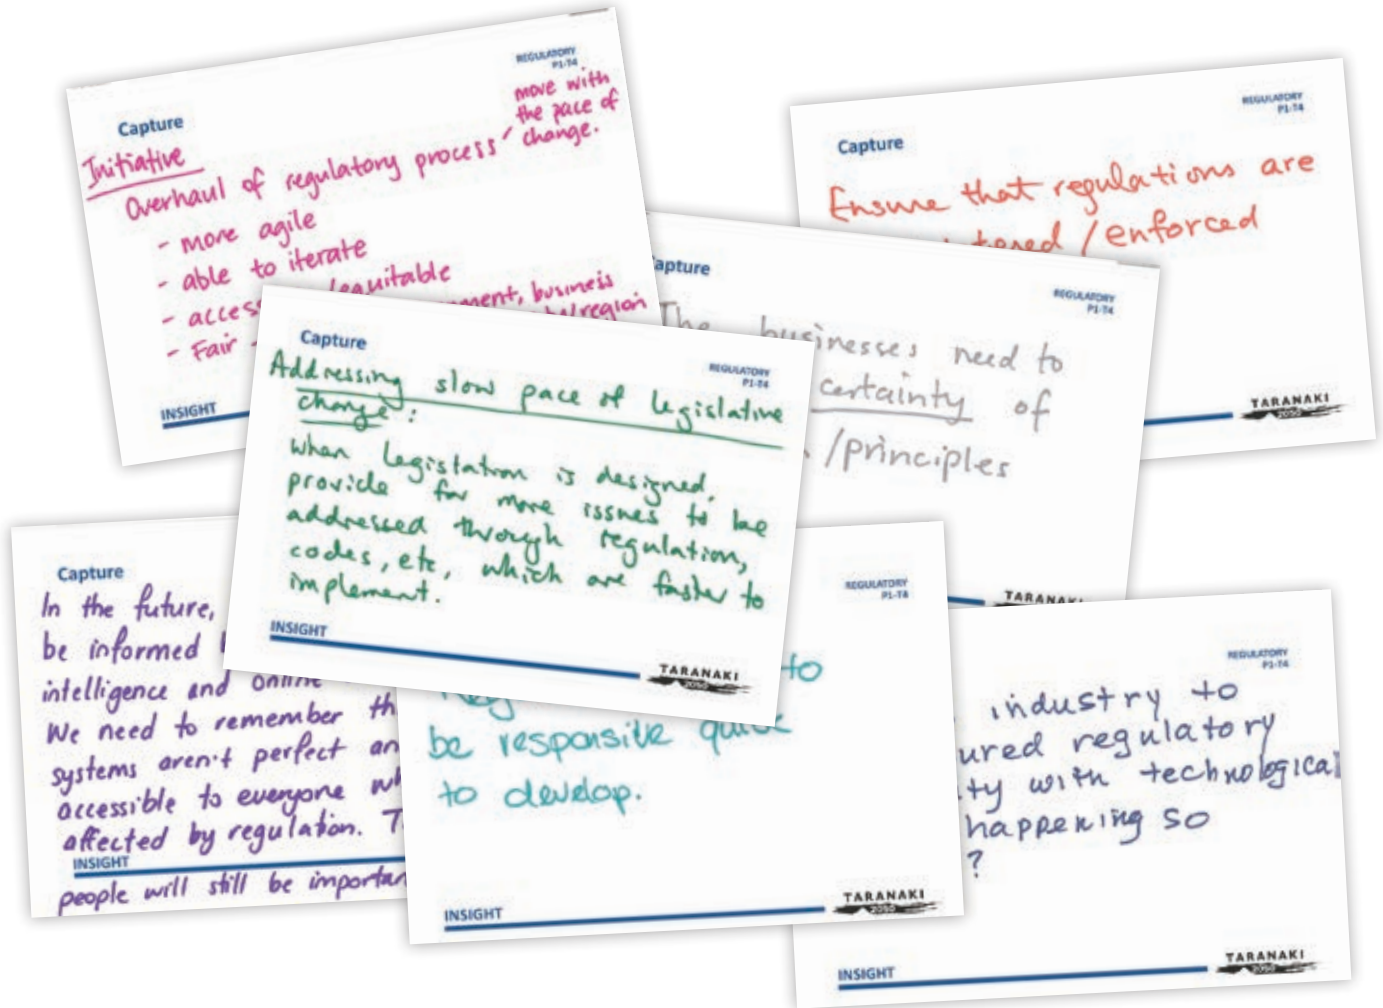 REGULATORY
P1-T4
Capture
move with
the pace of
change.
Initiative
Overhaul of regulatory process
- more agile
- able to iterate
- access equitable
- Fair - ment, business
region
INSIGHT
REGULATORY
P1-T4
Capture
Ensure that regulations are
/enforced
TARANAKI
2050
apture
REGULATORY
P1-T4
The businesses need to
certainty of
/principles
TARANAKI
Capture
REGULATORY
P1-T4
Addressing slow pace of legislative
change:
When legislation is designed,
provide for more issues to be
addressed through regulation,
codes, etc, which are faster to
implement.
INSIGHT
TARANAKI
2050
Capture
In the future,
be informed
intelligence and online
We need to remember th
systems aren't perfect an
accessible to everyone wh
affected by regulation. T
INSIGHT
people will still be importan
REGULATORY
P1-T4
to
be responsive quick
to develop.
INSIGHT
TARANAKI
2050
REGULATORY
P1-T4
industry to
ured regulatory
ty with technological
happening so
?
INSIGHT
TARANAKI
2050